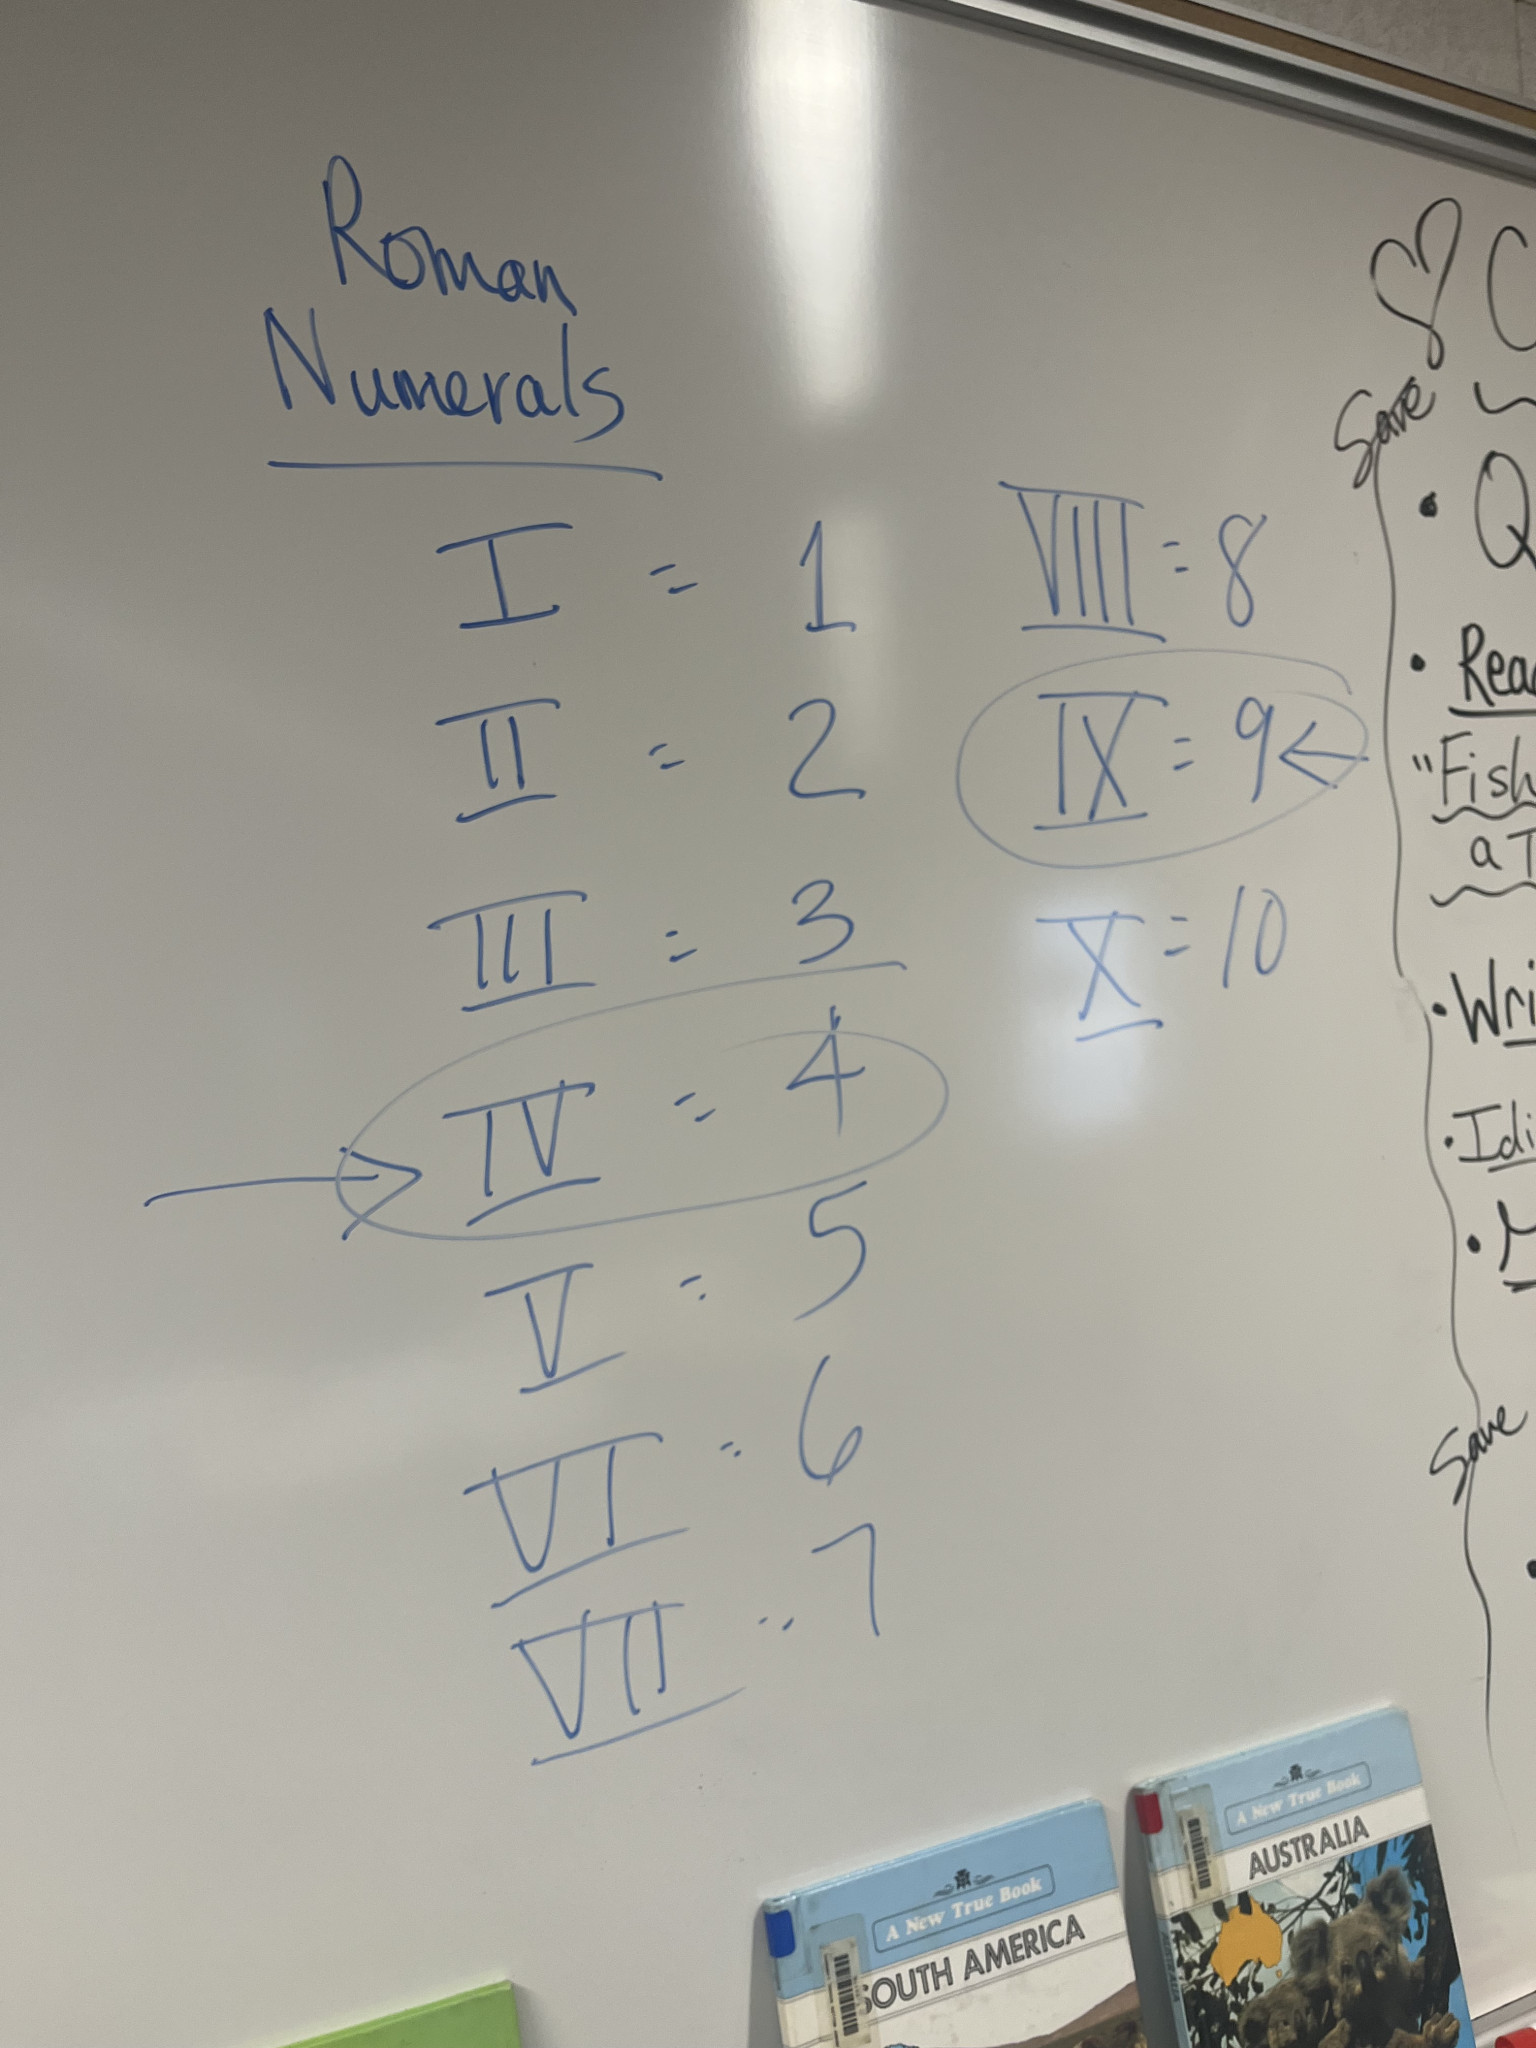 Roman
Numerals
I = 1
II = 2
III = 3
IV = 4
V = 5
VI = 6
VII = 7
VIII = 8
IX = 9
X = 10
Save
Save
A New True Book
SOUTH AMERICA
A New True Book
AUSTRALIA